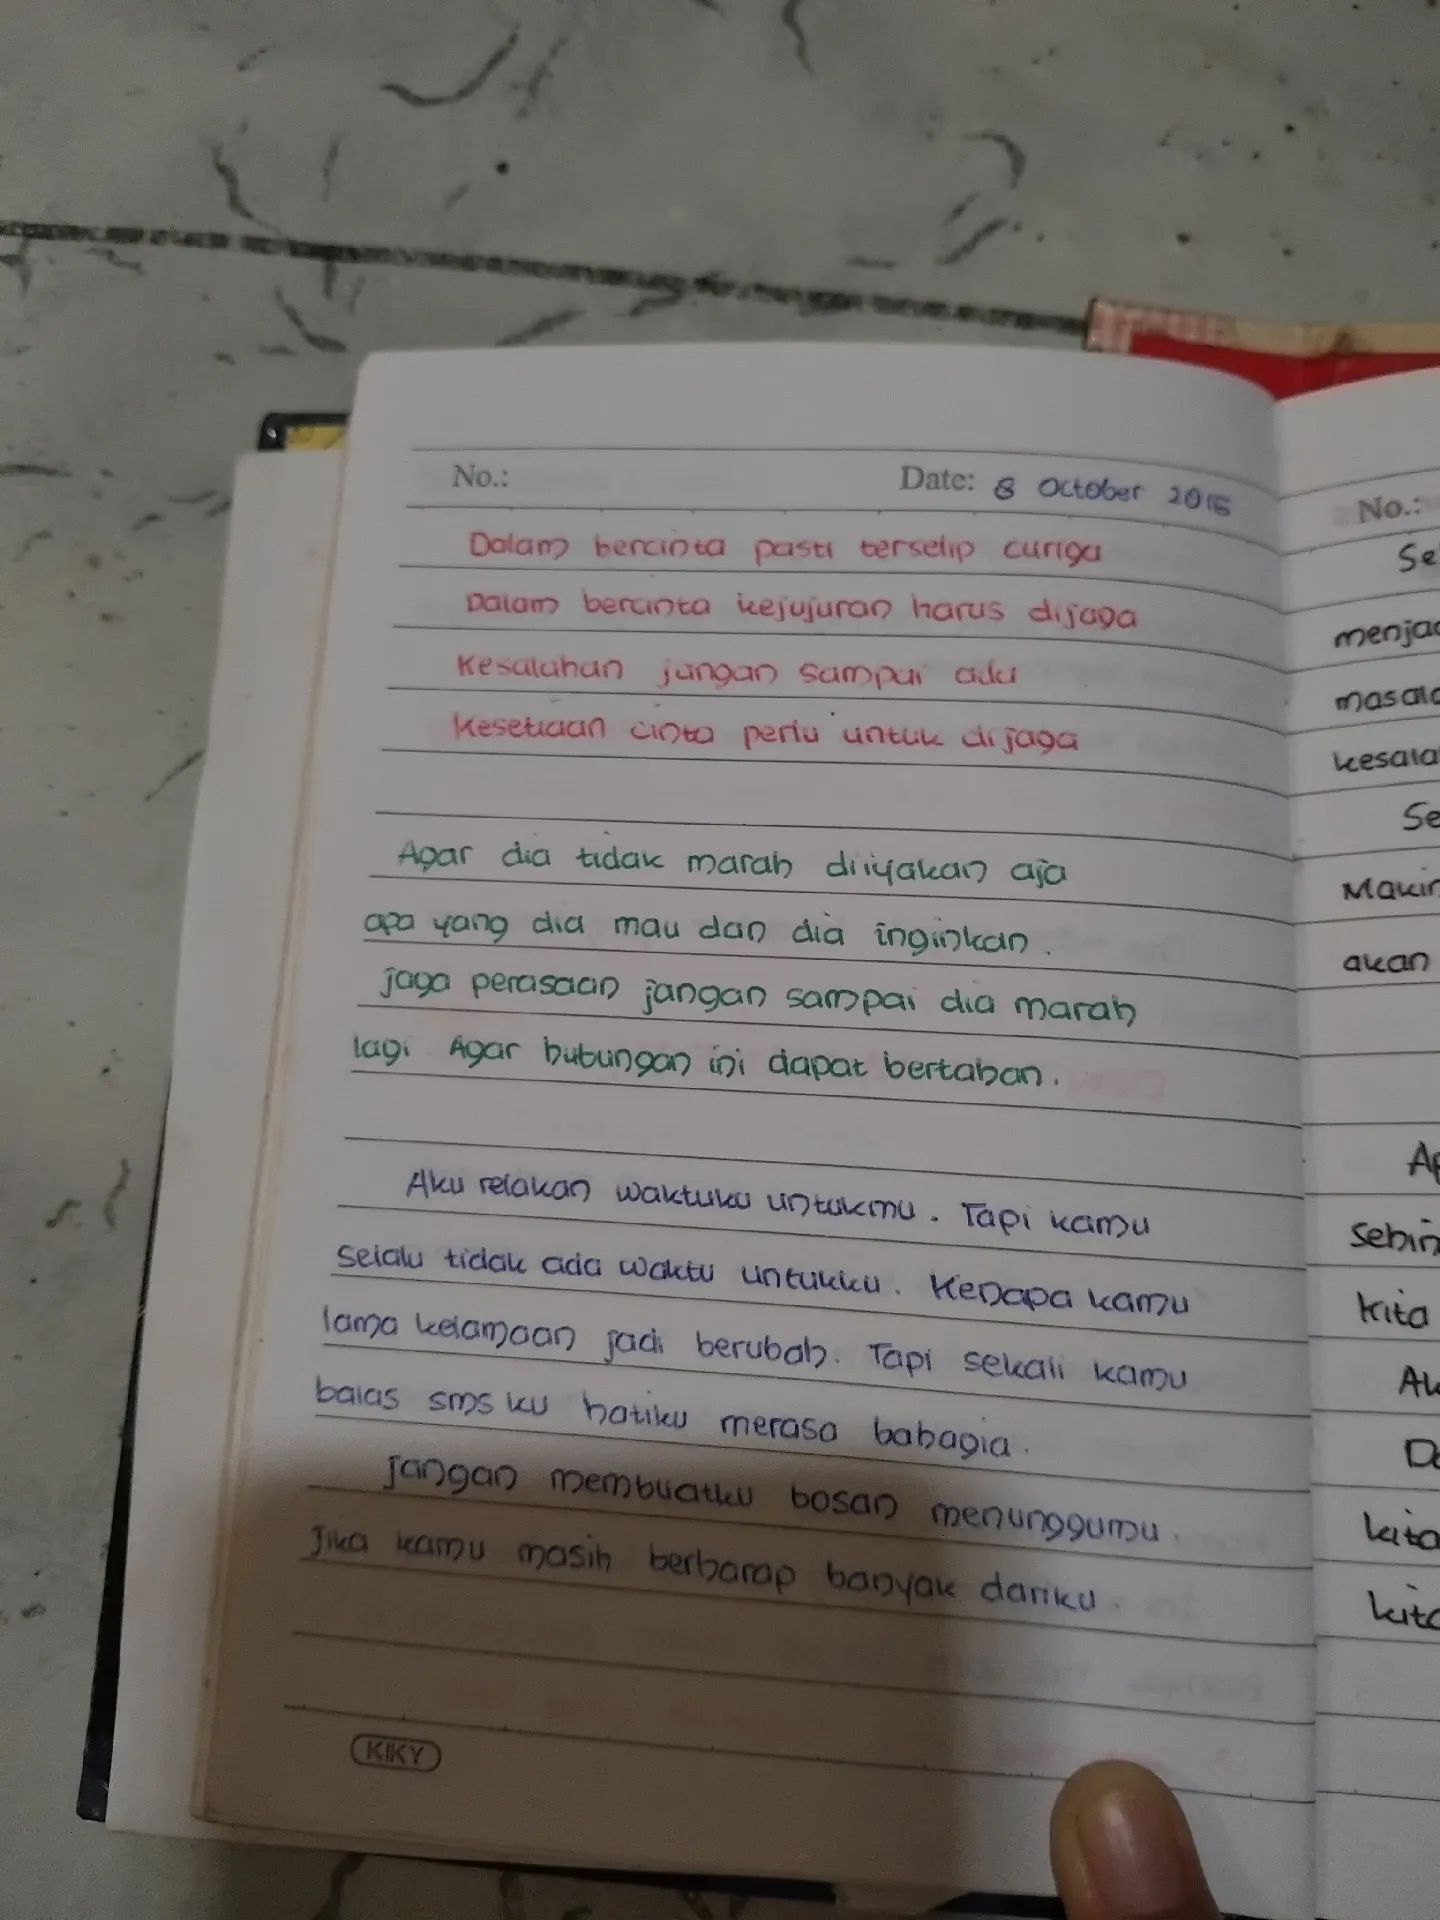 No.:
Date: 8 October 2015
Dalam bercinta pasti terselip curiga
Dalam bercinta kejujuran harus dijaga
Kesalahan jangan sampai ada
Kesetiaan cinta perlu untuk dijaga
Agar dia tidak marah diiyakan aja
apa yang dia mau dan dia inginkan.
jaga perasaan jangan sampai dia marah
lagi Agar hubungan ini dapat bertahan.
Aku relakan waktuku untukmu. Tapi kamu
selalu tidak ada waktu untukku. Kenapa kamu
lama kelamaan jadi berubah. Tapi sekali kamu
balas sms ku hatiku merasa bahagia.
Jangan membuatku bosan menunggumu.
Jika kamu masih berharap banyak dariku.
KIKY
No.:
Se
menjad
masala
kesala
Se
Makin
akan
Ap
Sehin
kita
Ak
Da
kita
kita